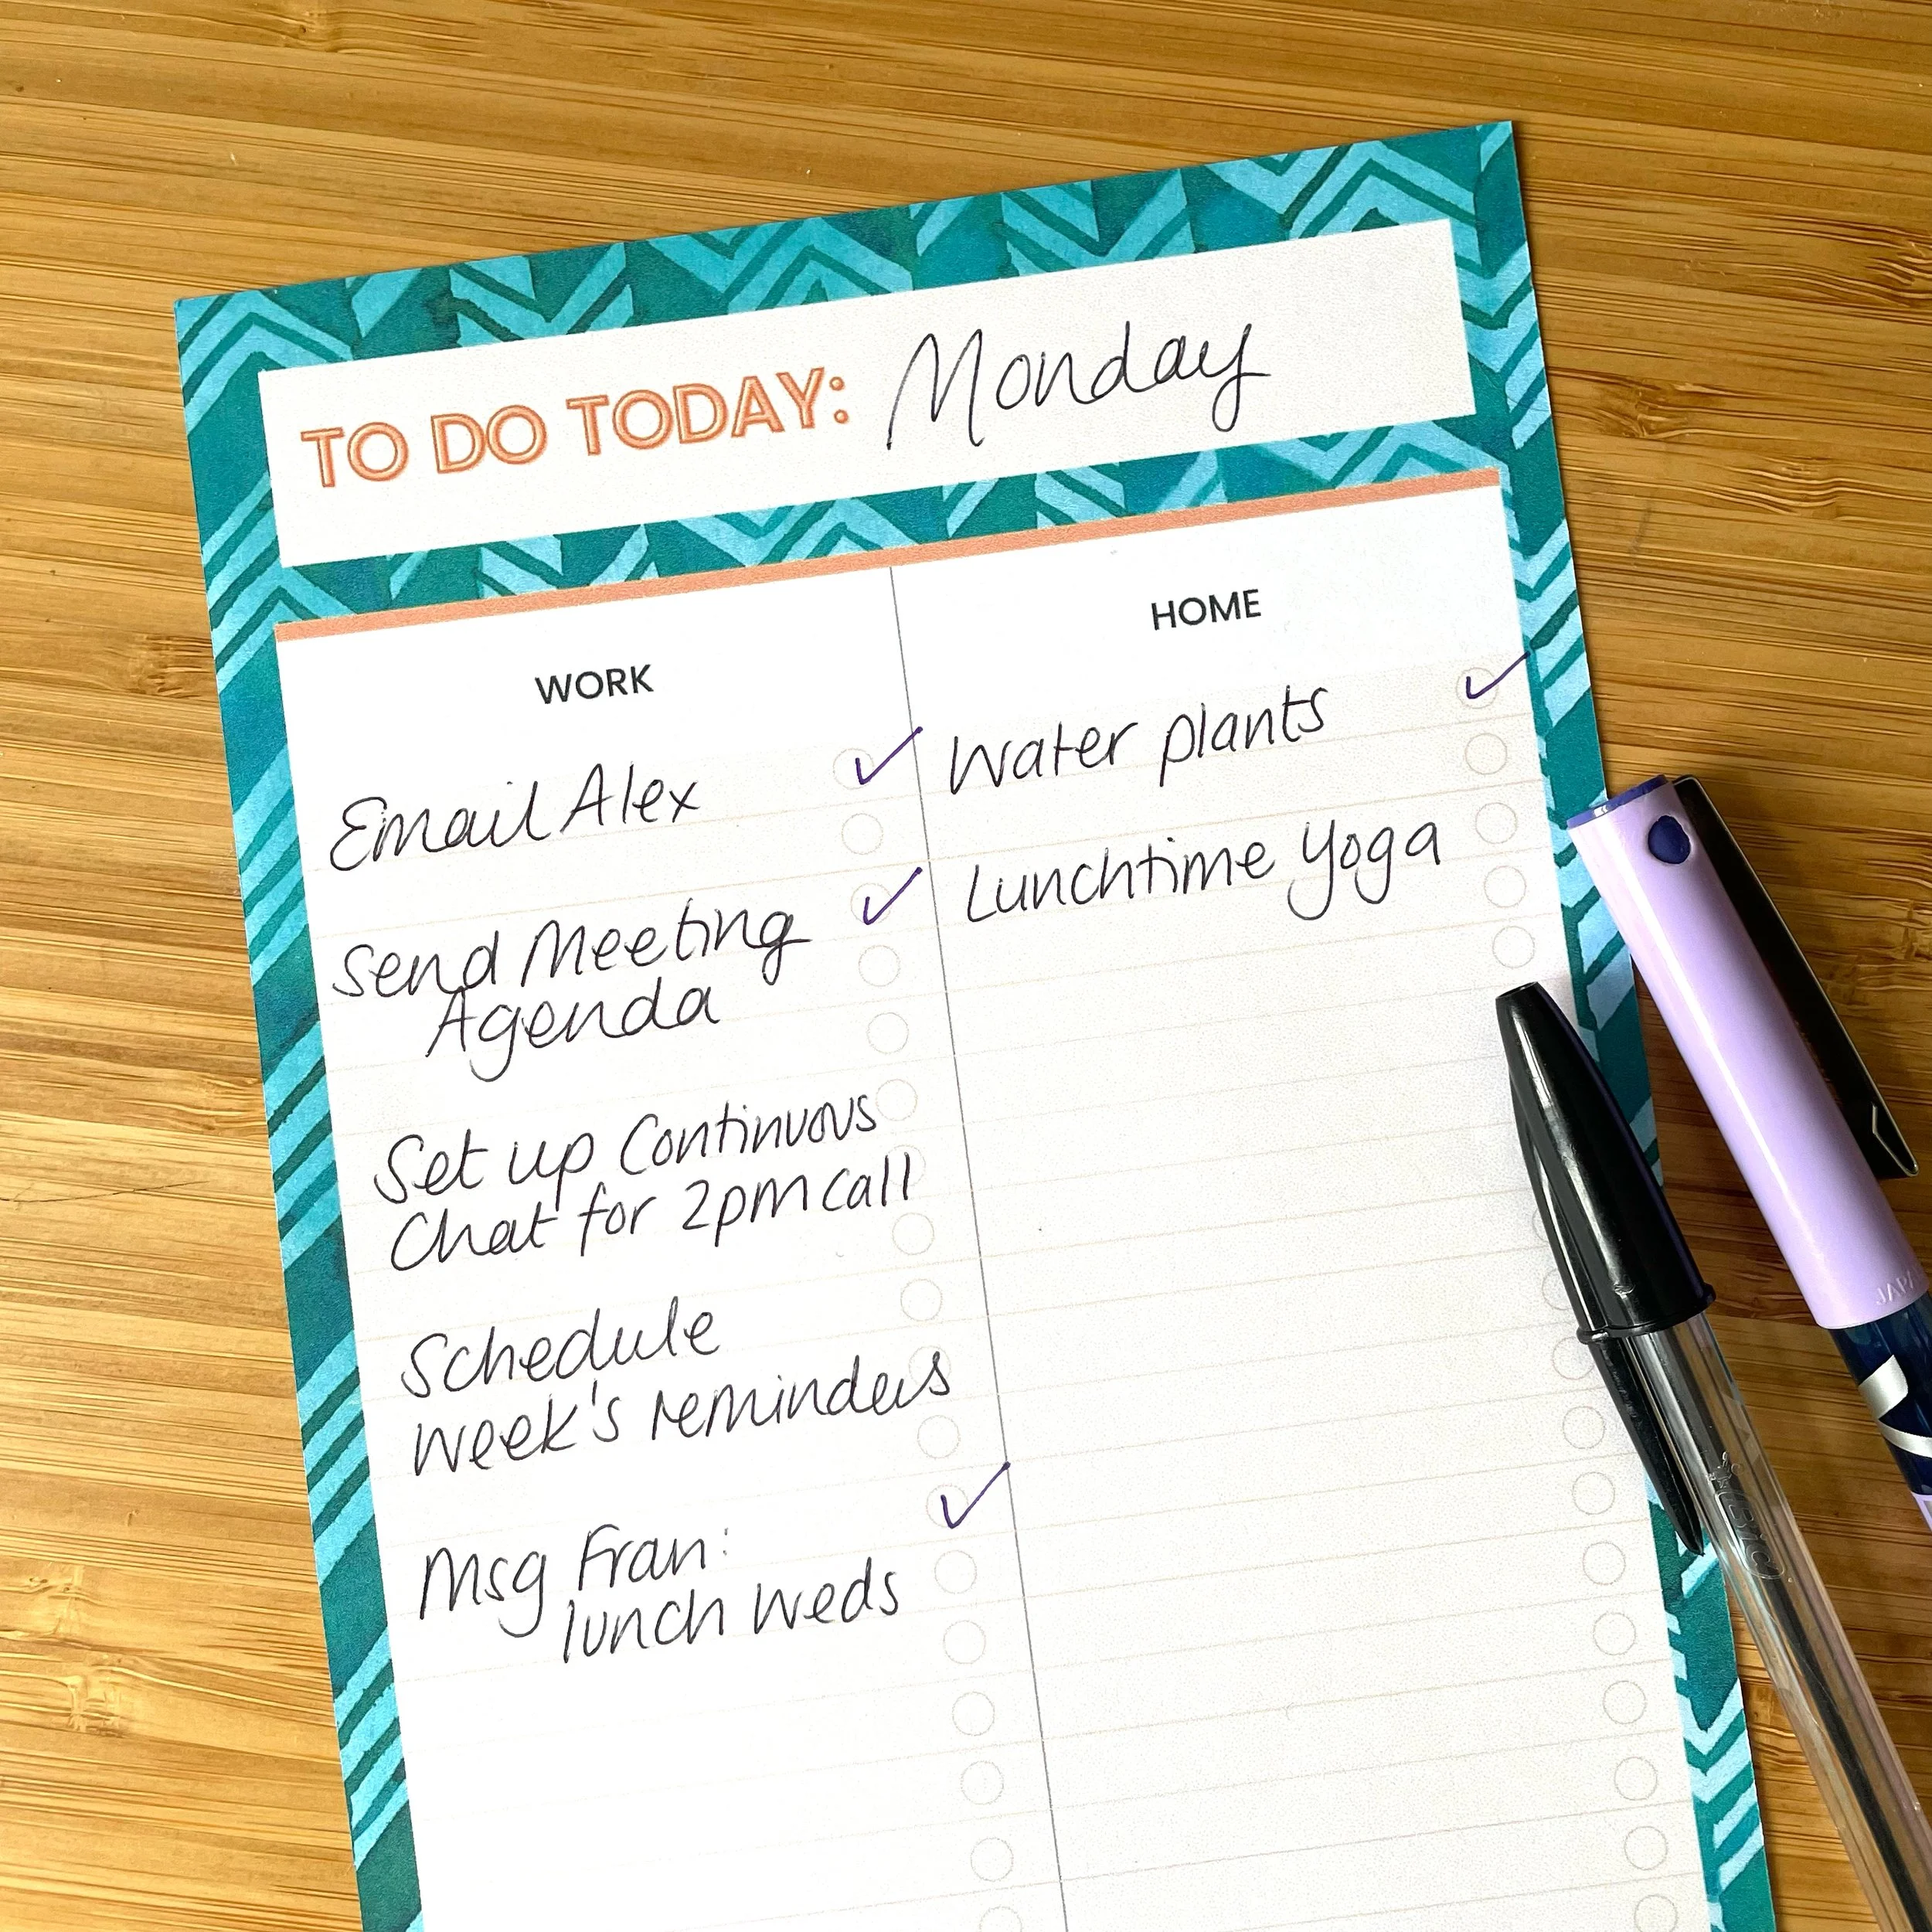 TO DO TODAY: Monday
WORK
Email Alex
Send Meeting
Agenda
Set up Continuous
Chat for 2pm call
Schedule
week's reminders
Msg Fran:
lunch weds
HOME
Water plants
Lunchtime Yoga
BIC